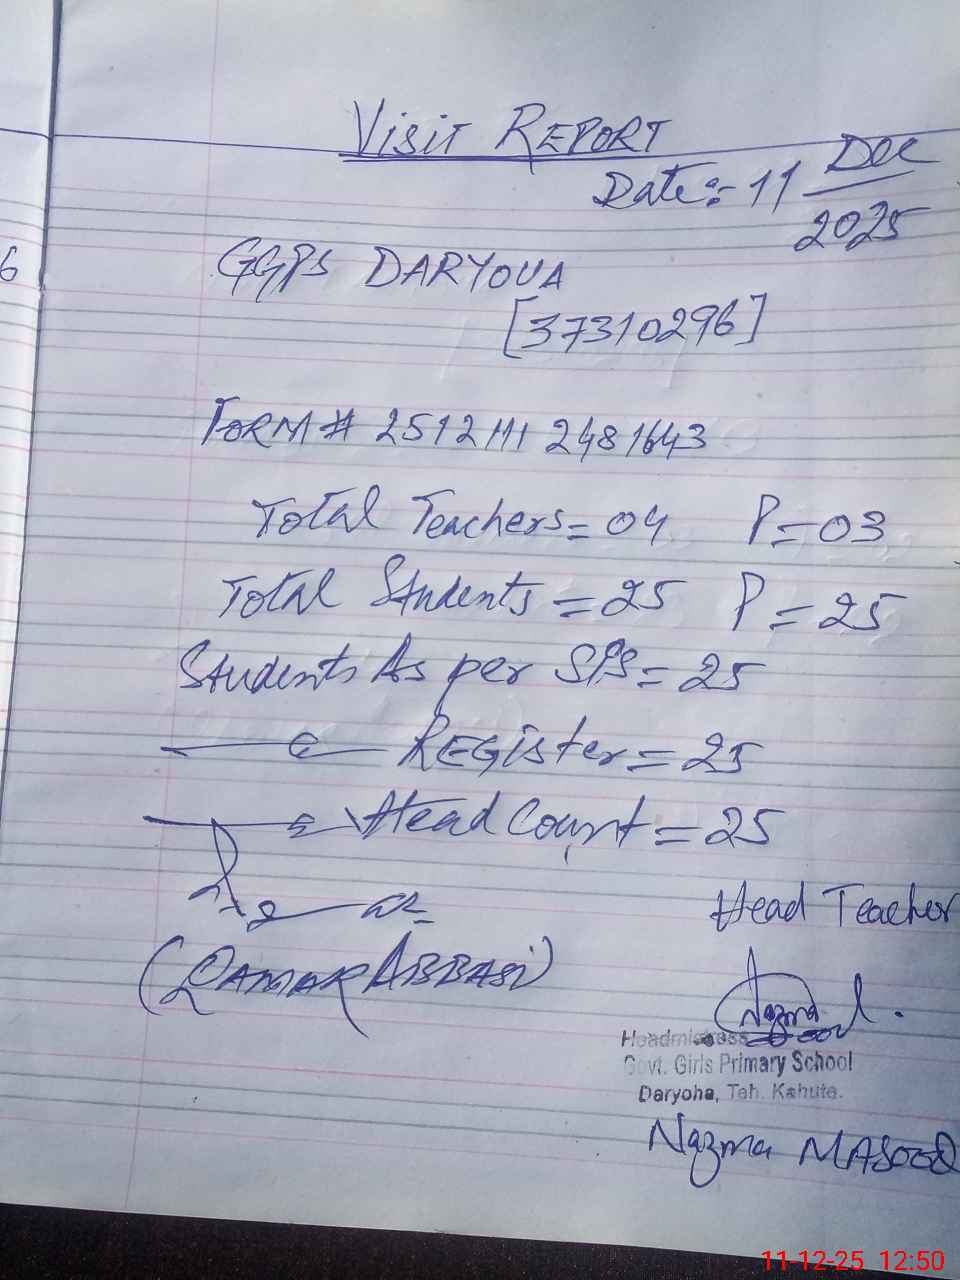 Visit REPORT
Date:- 11 Dec
2025
6
GGPS DARYOUA
[37310296]
FORM # 2512 1112481643
Total Teachers = 04 P = 03
Total Students = 25 P = 25
Students As per SIS = 25
Register = 25
Head Count = 25
Head Teacher
(QAMAR ABBASI)
Nazma
Headmistress
Govt. Girls Primary School
Daryoha, Teh. Kahuta.
Nazma MASOOD
11-12-25 12:50